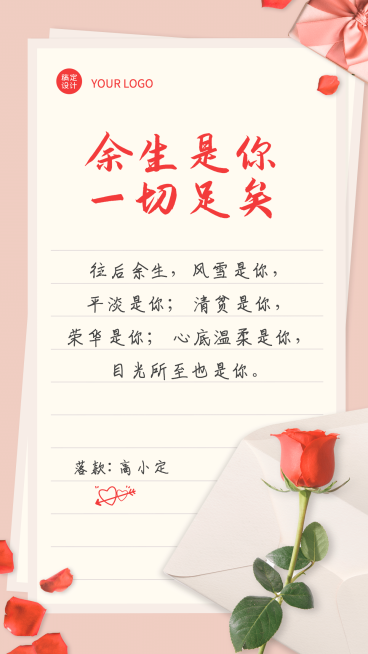 稿定
设计
YOUR LOGO
余生是你
一切足矣
往后余生，风雪是你，
平淡是你；清贫是你，
荣华是你；心底温柔是你，
目光所至也是你。
落款：高小定